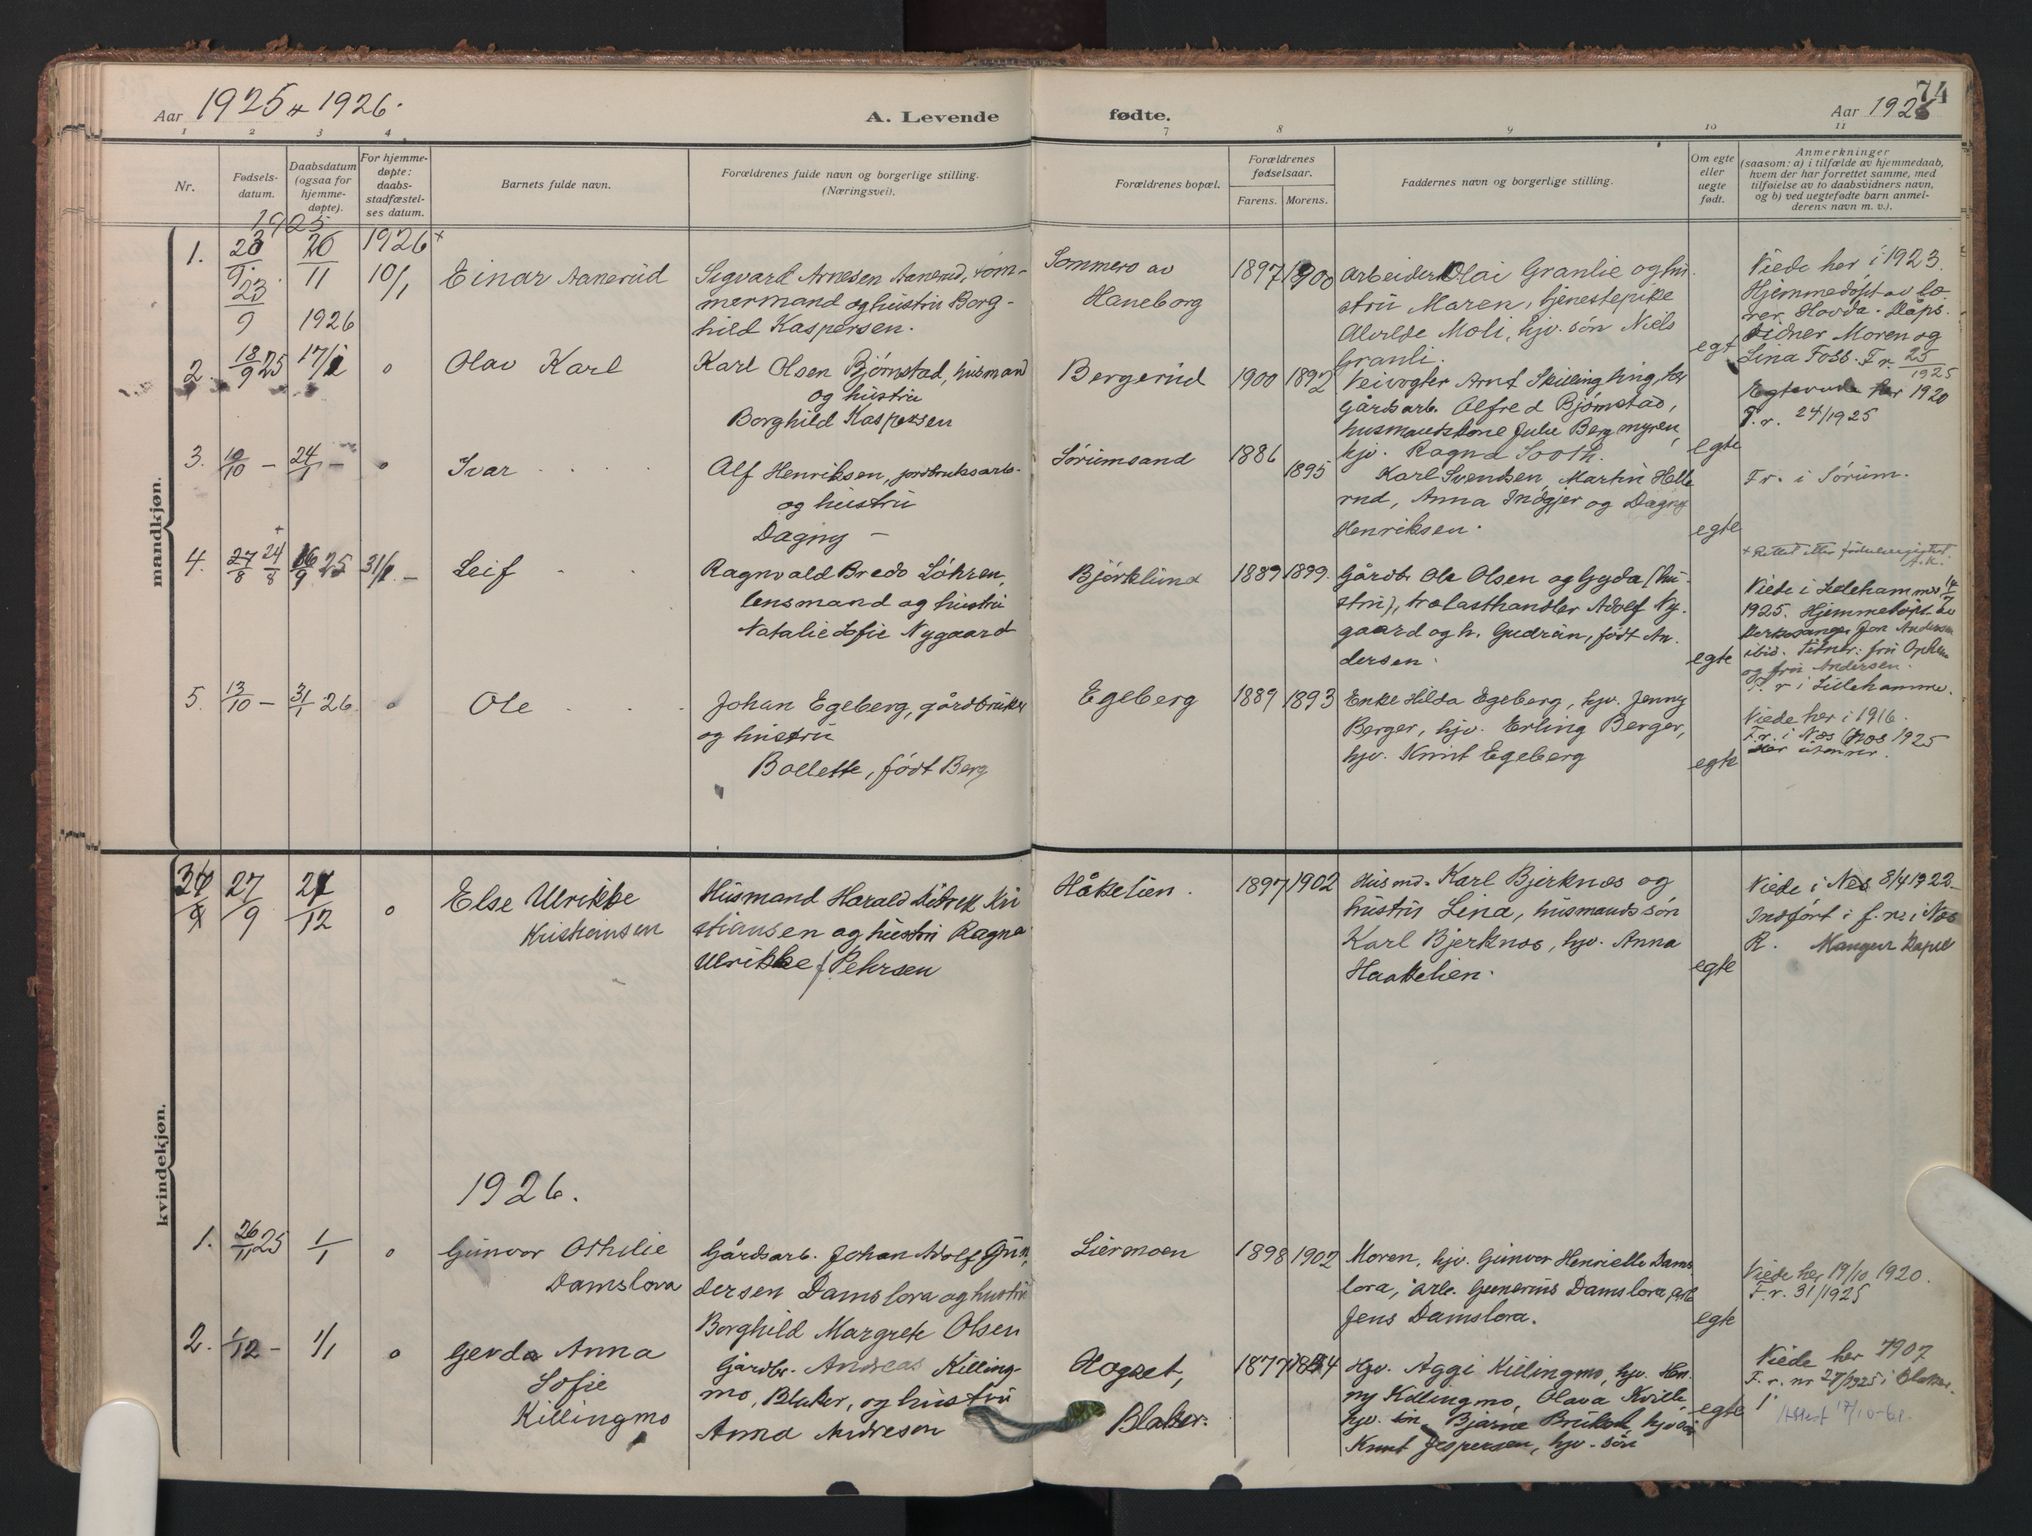 Aar 1925 & 1926.
A. Levende fødte.
Aar 1926
74
1 2 3 4 7 8 9 10 11
Nr.
Fødsels-
datum.
Daabsdatum
(ogsaa for
hjemme-
døpte).
For hjemme-
døpte:
daabs-
stadfæstel-
ses datum.
Barnets fulde navn.
Forældrenes fulde navn og borgerlige stilling.
(Næringsvei).
Forældrenes bopæl.
Forældrenes
fødselsaar.
Farens. Morens.
Faddernes navn og borgerlige stilling.
Om egte
eller
uegte
født.
Anmerkninger
(saasom: a) i tilfælde av hjemmedaab,
hvem der har forrettet samme, med
tilføielse av to daabsvidners navn,
og b) ved uegtefødte barn anmel-
derens navn m. v.).
mandkjøn.
1925
1.
23/9
11
1926
1926
10/1
Einar Aanerud
Sigvard Arnesen Aanerud, tøm-
mermand og hustru Borg-
hild Kaspersen.
Sommero av
Haneborg
1897 1900
Arbeider Olai Granlie og hu-
stru Maren, tjenestepike
Alvilde Moli, hjv. søn Niels
Granli.
egt
Viede her i 1923.
Hjemmedøpt av læ-
rer Hovda. Dåps-
vidner Moren og
Lina Foss. F.r. 25/1925
2.
18/9 25
17/1
0
Olav Karl
Karl Olsen Bjørnstad, husmand
og hustru
Borghild Kaspersen
Bergerud
1900 1892
Veivogter Arnt Skillinghing,
Gårdsarb. Alfred Bjørnstad,
husmandskone Julie Bergmyren,
hjv. Ragna Sooth.
egte
Egteviede her 1920
F.r. 24/1925
3.
10/10 -
24/1 -
0
Ivar
Alf Henriksen, jordbruksarb.
og hustru
Dagny -
Sørumsand
1886 1895
Karl Svendsen, Martin Helle
rud, Anna Indgjer og Dagny
Henriksen.
egte
F.r. i Sørum.
4.
27/8 24/8
16/9 25
31/1 -
Leif
Ragnvald Bredo Løhren,
lensmand og hustru
Natalie Sofie Nygaard
Bjørklund
1889 1899.
Gårdbr. Ole Olsen og Gyda (hu-
stru), trælasthandler Adolf Ny-
gaard og h. Gudrun, født An-
dersen.
egte
+ Rettet etter fødselsregistret.
A.K.
Viede i Lillehammer 14/7
1925. Hjemmedøpt av
kirkesanger Jon Andersen
ibid. Vidner: fru
og fru Andersen.
F.r i Lillehammer.
5.
13/10 -
31/1 26.
0
Ole
Johan Egeberg, gårdbruker
og hustru
Bollette, født Berg
Egeberg
1889 1893
Enke Hilda Egeberg, hjv. Jenny
Berger, hjv. Erling Berger,
hjv. Knut Egeberg
egte
Viede her i 1916.
F.r. i Nes 1925
kvindekjøn.
27/9
27/12
0
Else Ulrikke
Kristiansen
Husmand Harald Didrek Kri
stiansen og hustru Ragna
Ulrikke f. Pehrsen
Håkkelien.
1897 1902
Husmd. Karl Bjerknes og
hustru Lina, husmands søn
Karl Bjerknes, hjv. Anna
Haakelien.
egte
Viede i Nes 8/4 1922
Indført i f.r. i Nes
R. Mangler Dåpsl
1926.
1.
26/11 25
1/1
0
Gunvor Othilie
Damslora
Gårdsarb. Johan Adolf Gun-
dersen Damslora og hustru
Borghild Margrete Olsen
Liermoen
1898 1902
Moren, hjv. Gunvor Henrielle Dams-
lora, arb. Gunerius Damslora, arb.
Jens Damslora.
egte
Viede her 19/10 1920.
F.r. 31/1925
2.
1/12 -
1/1
0
Gerda Anna
Sofie
Killingmo
Gårdbr. Andreas Killing-
mo, Blaker, og hustru
Anna Andresen
Hogset,
Blaker.
1877 1884
Hjv. Aggi Killingmo, hjv. Hen-
ny Killingmo, Olava Kville,
Bjarne
Knut Jespersen, hjv. søn
egte
Viede her 1907
F.r. nr 27/1925 i Blaker.
Attest 17/10-61.